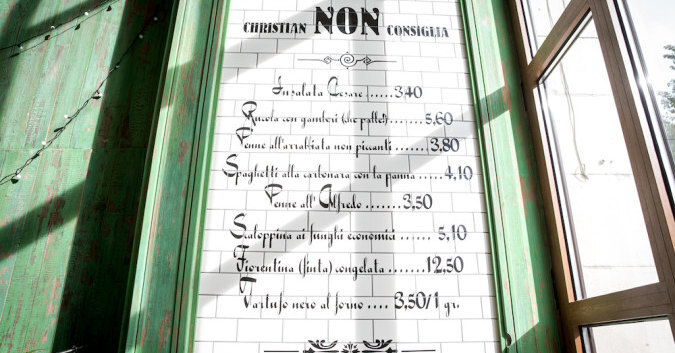 CHRISTIAN NON CONSIGLIA
Insalata Cesare.....3,40
Rucola con gamberi (che palle).......5,60
Penne all'arrabiata non piccanti ......3,80
Spaghetti alla carbonara con la panna .....4,10
Penne all' Alfredo .......3,50
Scaloppina ai funghi economici ...... 5,10
Fiorentina (finta) congelata ......12,50
Tartufo nero al forno .... 3,50/1 gr.